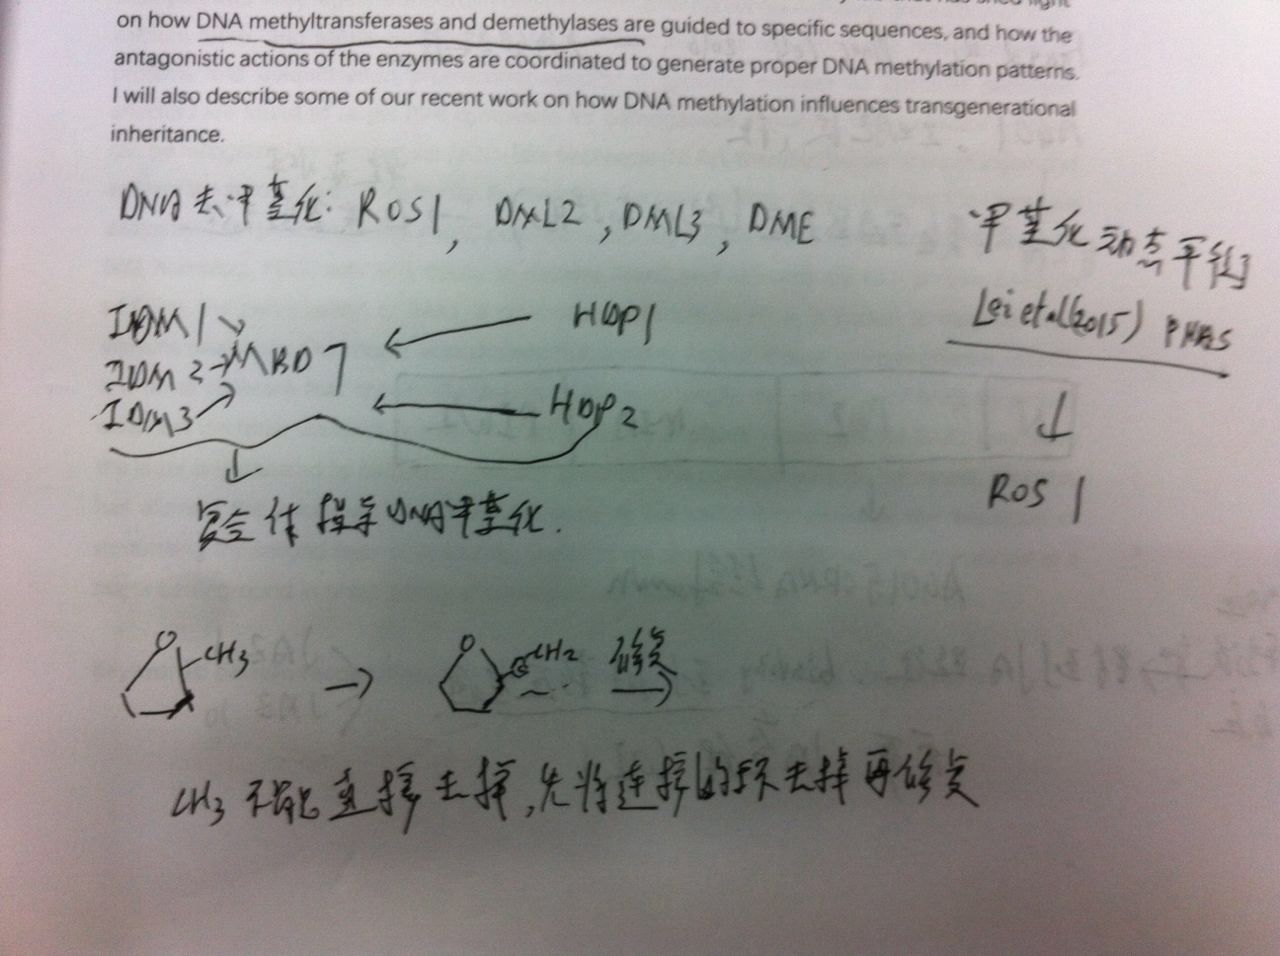 on how DNA methyltransferases and demethylases are guided to specific sequences, and how the
antagonistic actions of the enzymes are coordinated to generate proper DNA methylation patterns.
I will also describe some of our recent work on how DNA methylation influences transgenerational
inheritance.
DNA去甲基化: ROS1, DML2, DML3, DME
甲基化动态平衡
Lei et al(2015) PNAS
↓
ROS1
IDM1
IDM2→MBD7
IDM3
← HDP1
← HDP2
↓
复合体指导DNA甲基化.
CH3 → CH2 修复 →
CH3不能直接去掉,先将连接的环去掉再修复